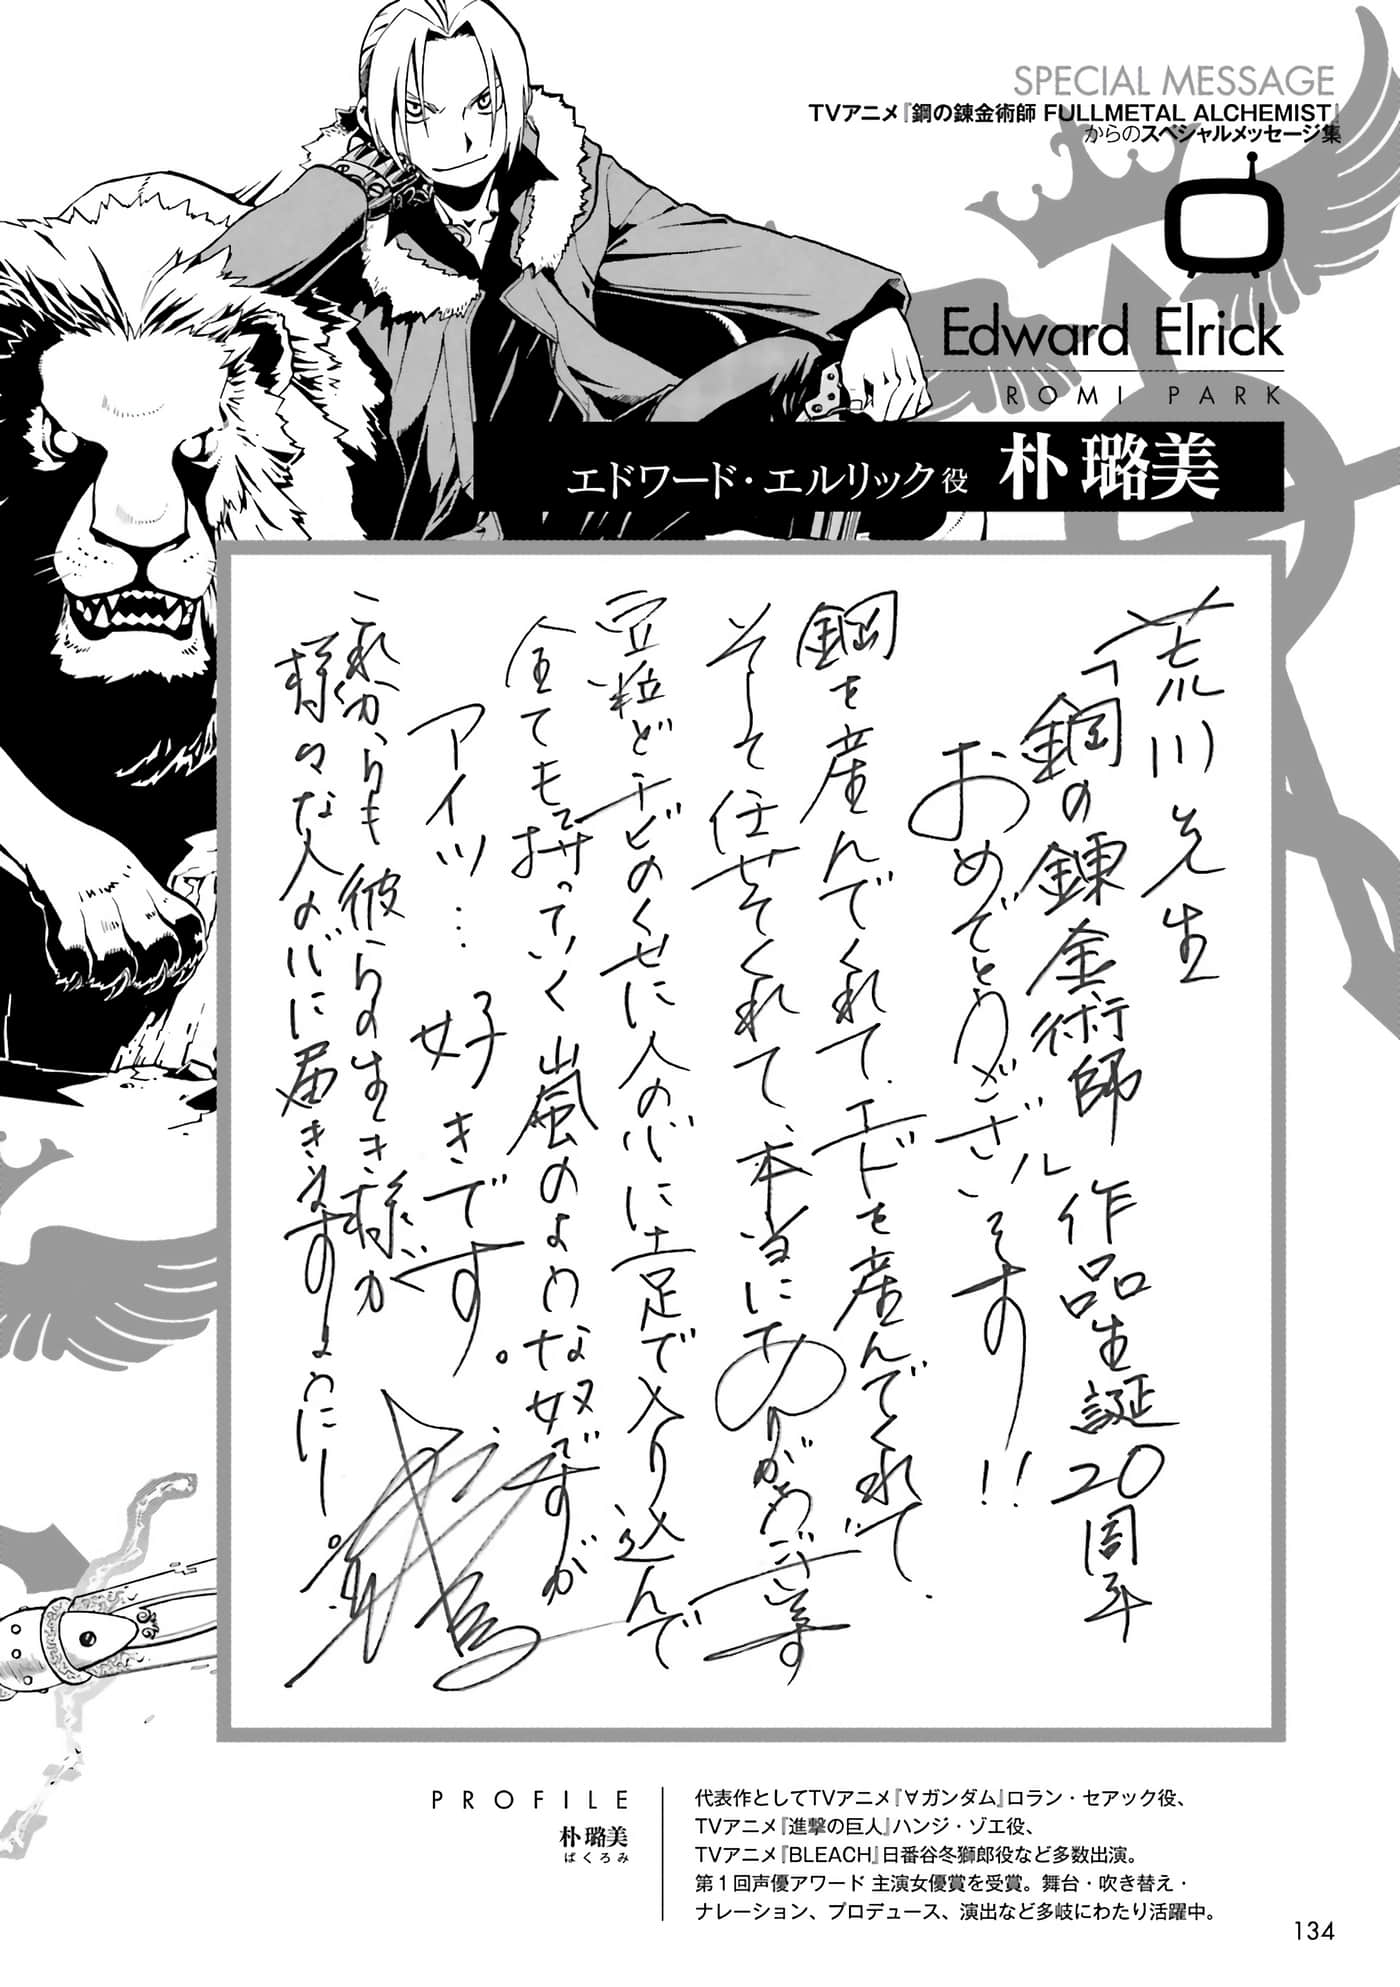 SPECIAL MESSAGE
TVアニメ『鋼の錬金術師 FULLMETAL ALCHEMIST』
からのスペシャルメッセージ集
Edward Elrick
ROMI PARK
エドワード・エルリック役 朴 璐美
荒川先生
「鋼の錬金術師 作品生誕20周年
おめでとうございます!!
鋼を産んでくれて、エドを産んでくれて、
そして任せてくれて、本当にありがとうございます
豆粒どチビのくせに人の心に土足で入り込んで
全てを持っていく嵐のような奴ですが
アイツ…好きです。
これからも彼らの生き様が
様々な人の心に届きますようにー。
PROFILE
朴 璐美
ぱくろみ
代表作としてTVアニメ『∀ガンダム』ロラン・セアック役、
TVアニメ『進撃の巨人』ハンジ・ゾエ役、
TVアニメ『BLEACH』日番谷冬獅郎役など多数出演。
第1回声優アワード 主演女優賞を受賞。舞台・吹き替え・
ナレーション、プロデュース、演出など多岐にわたり活躍中。
134